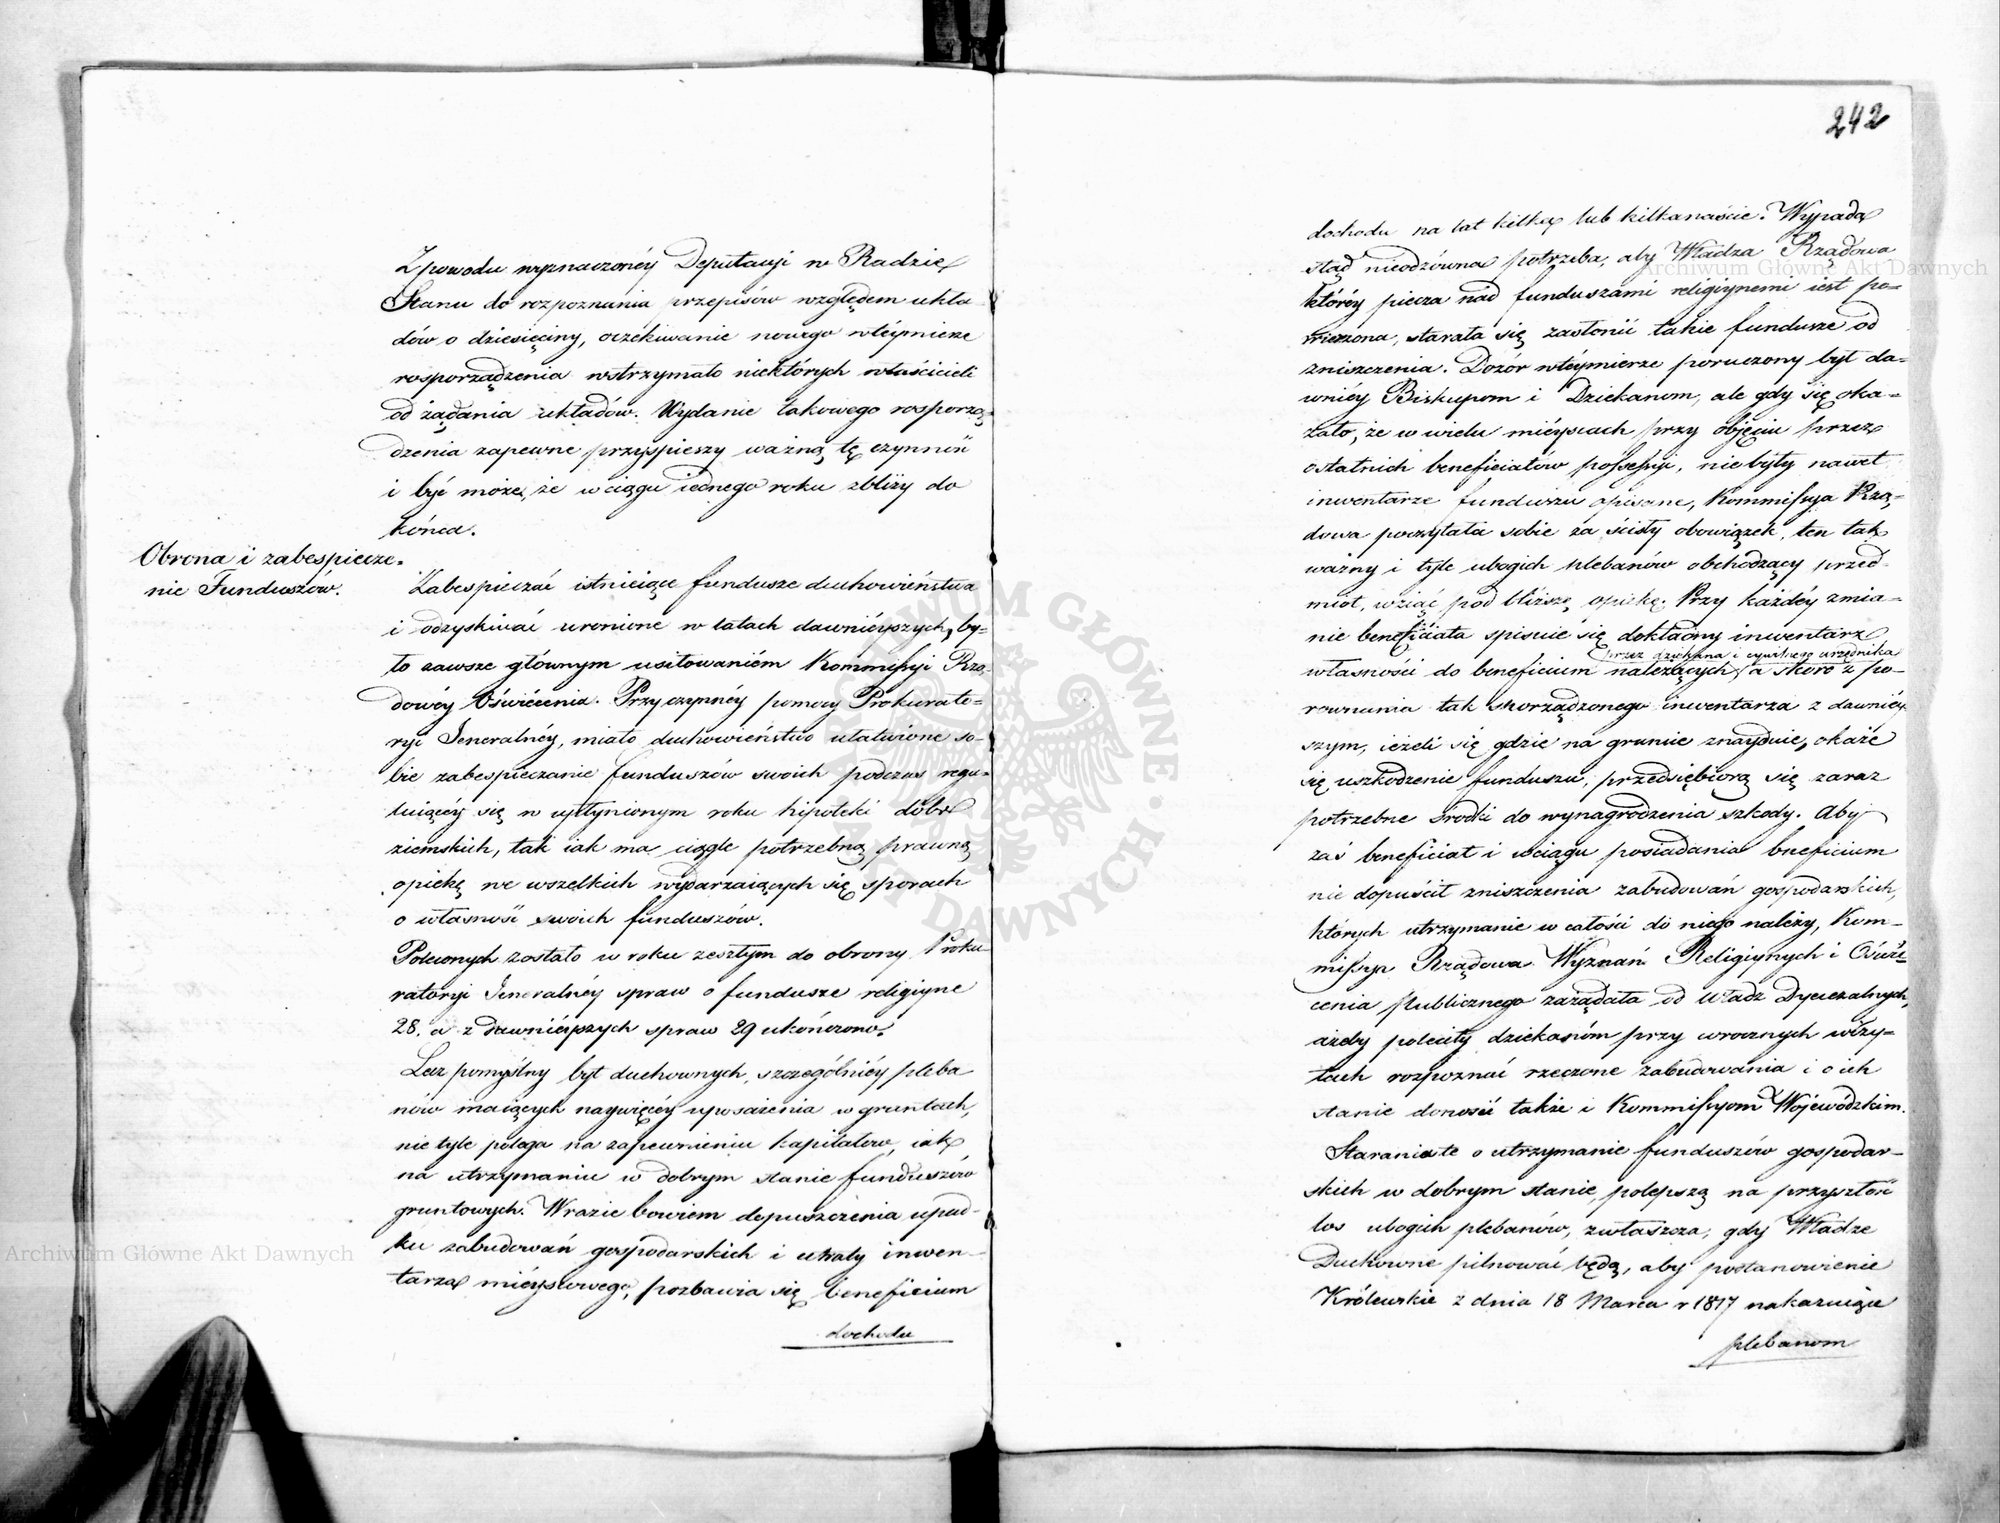 Z powodu wyznaczonéy Deputacyi w Radzie
Stanu do rozpoznania przepisów względem ukła-
dów o dziesięciny, oczekiwanie nowego w téymierze
rosporządzenia wstrzymało niektórych właścicieli
od żądania układów. Wydanie takowego rosporzą-
dzenia zapewne przyspieszy ważną tę czynność
i być może, że w ciągu iednego roku zbliży do
końca.
Obrona i zabespiecze-
nie Funduszów.
Zabespieczać istnieiące fundusze duchowieństwa
i odzyskiwać uronione w latach dawniéyszych, by-
ło zawsze głównym usiłowaniém Kommissyi Rzą-
dowéy Oświécenia. Przy czynnéy pomocy Prokurato-
ryi Jeneralnéy, miało duchowieństwo ułatwione so-
bie zabespieczanie funduszów swoich podczas regu-
luiącéy się w upłynionym roku hipoteki dóbr
ziemskich, tak iak ma ciągle potrzebną prawną
opiekę we wszelkich wydarzaiących się sporach
o własność swoich funduszów.
Poleconych zostało w roku zeszłym do obrony Proku-
ratoryi Jeneralnéy spraw o fundusze religiyne
28. a z dawniéyszych spraw 29 ukończono.
Lecz pomyślny byt duchownych, szczególniéy pleba
nów maiących naywięcéy uposażenia w gruntach,
nie tyle polega na zapewnieniu kapitałów, iak
na utrzymaniu w dobrym stanie funduszów
gruntowych. W razie bowiem dopuszczenia upad-
ku zabudowań gospodarskich i utraty inwen-
tarza miéyscowego, pozbawia się beneficium
dochodu
242
dochodu na lat kilka lub kilkanaście. Wypada
stąd nieodzówna potrzeba, aby Władza Rządowa
któréy piecza nad funduszami religiynemi iest po-
wierzona, starała się zasłonić takie fundusze od
zniszczenia. Dozór w téymierze poruczony był da-
wniéy Biskupom i Dziekanom, ale gdy się oka-
zało, że w wielu miéyscach przy objęciu przez
ostatnich beneficiatów possessyi, nie były nawet
inwentarze funduszu opisane, Kommissya Rzą-
dowa poczytała sobie za ścisły obowiązek, ten tak
ważny i tyle ubogich plebanów obchodzący przed-
miot, wziąć pod bliższą opiekę. Przy każdéy zmia-
nie beneficiata spisuie się dokładny inwentarz
przez dziekana i cywilnego urzędnika
własności do beneficium należących, a skoro z po-
rownania tak sporządzonego inwentarza z dawniéy
szym, ieżeli się gdzie na gruncie znayduie, okaże
się uszkodzenie funduszu, przedsiębiorą się zaraz
potrzebne środki do wynagrodzenia szkody. Aby
zaś beneficiat i w ciągu posiadania bneficium
nie dopuścił zniszczenia zabudowań gospodarskich,
których utrzymanie w całości do niego należy, Kom-
missya Rządowa Wyznań Religiynych i Oświé-
cenia Publicznego zażądała od władz Dyecezalnych,
ażeby poleciły dziekanóm przy wrocznych wizy-
tach rozpoznać rzeczone zabudowania i o ich
stanie donosić także i Kommissyom Wojewódzkim.
Starania te o utrzymanie funduszów gospodar-
skich w dobrym stanie, polepszą na przyszłość
los ubogich plebanów, zwłaszcza, gdy Władze
Duchowne pilnować będą, aby postanowienie
Królewskie z dnia 18 Marca r 1817 nakazuiące
plebanom
Archiwum Główne Akt Dawnych
Archiwum Główne Akt Dawnych
ARCHIWUM GŁÓWNE AKT DAWNYCH